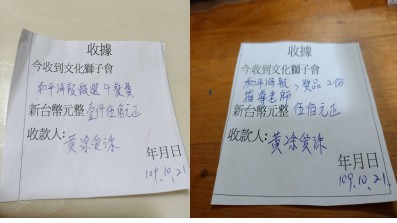 收據
今收到文化獅子會
和平海報徵選午餐費
新台幣元整 壹仟伍佰元正
收款人:黃涂愛珠
年月日
109.10.21
收據
今收到文化獅子會
和平海報
指導老師 獎品 2份
新台幣元整 伍佰元正
收款人:黃涂愛珠
年月日
109.10.21.